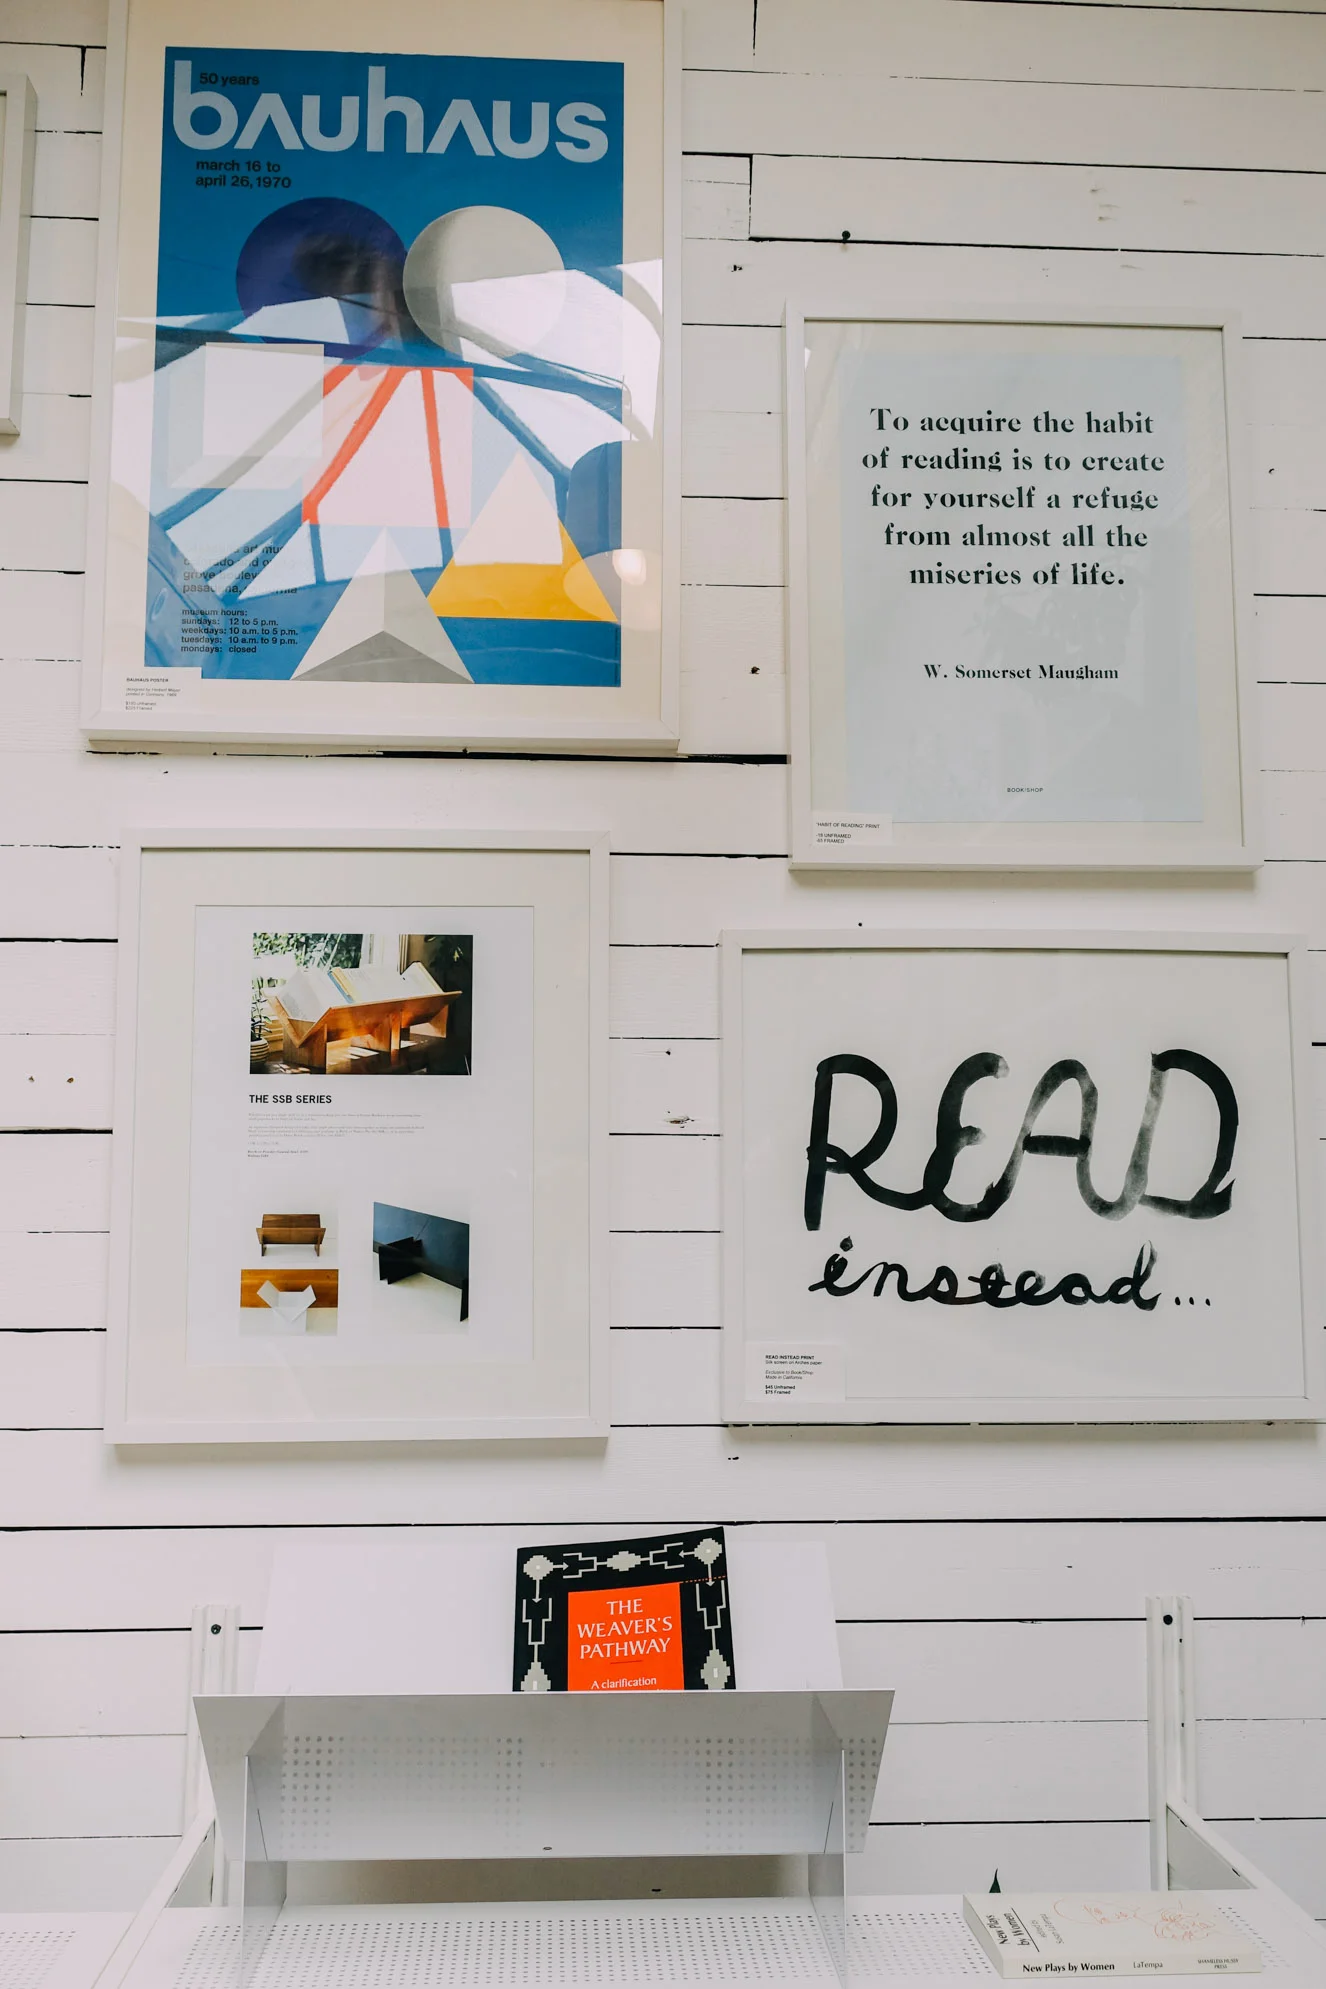 50 years
bauhaus
march 16 to
april 26, 1970
museum hours:
sundays: 12 to 5 p.m.
weekdays: 10 a.m. to 5 p.m.
tuesdays: 10 a.m. to 9 p.m.
mondays: closed
BAUHAUS POSTER
To acquire the habit
of reading is to create
for yourself a refuge
from almost all the
miseries of life.
W. Somerset Maugham
BOOK/SHOP
"HABIT OF READING" PRINT
UNFRAMED
FRAMED
THE SSB SERIES
READ
instead...
READ INSTEAD PRINT
Silk screen on Arches paper
Exclusive to Book/Shop
Made in California
$45 Unframed
$75 Framed
THE
WEAVER'S
PATHWAY
A clarification
New Plays
by Women
New Plays by Women LaTempa SHAMELESS HUSSY
PRESS